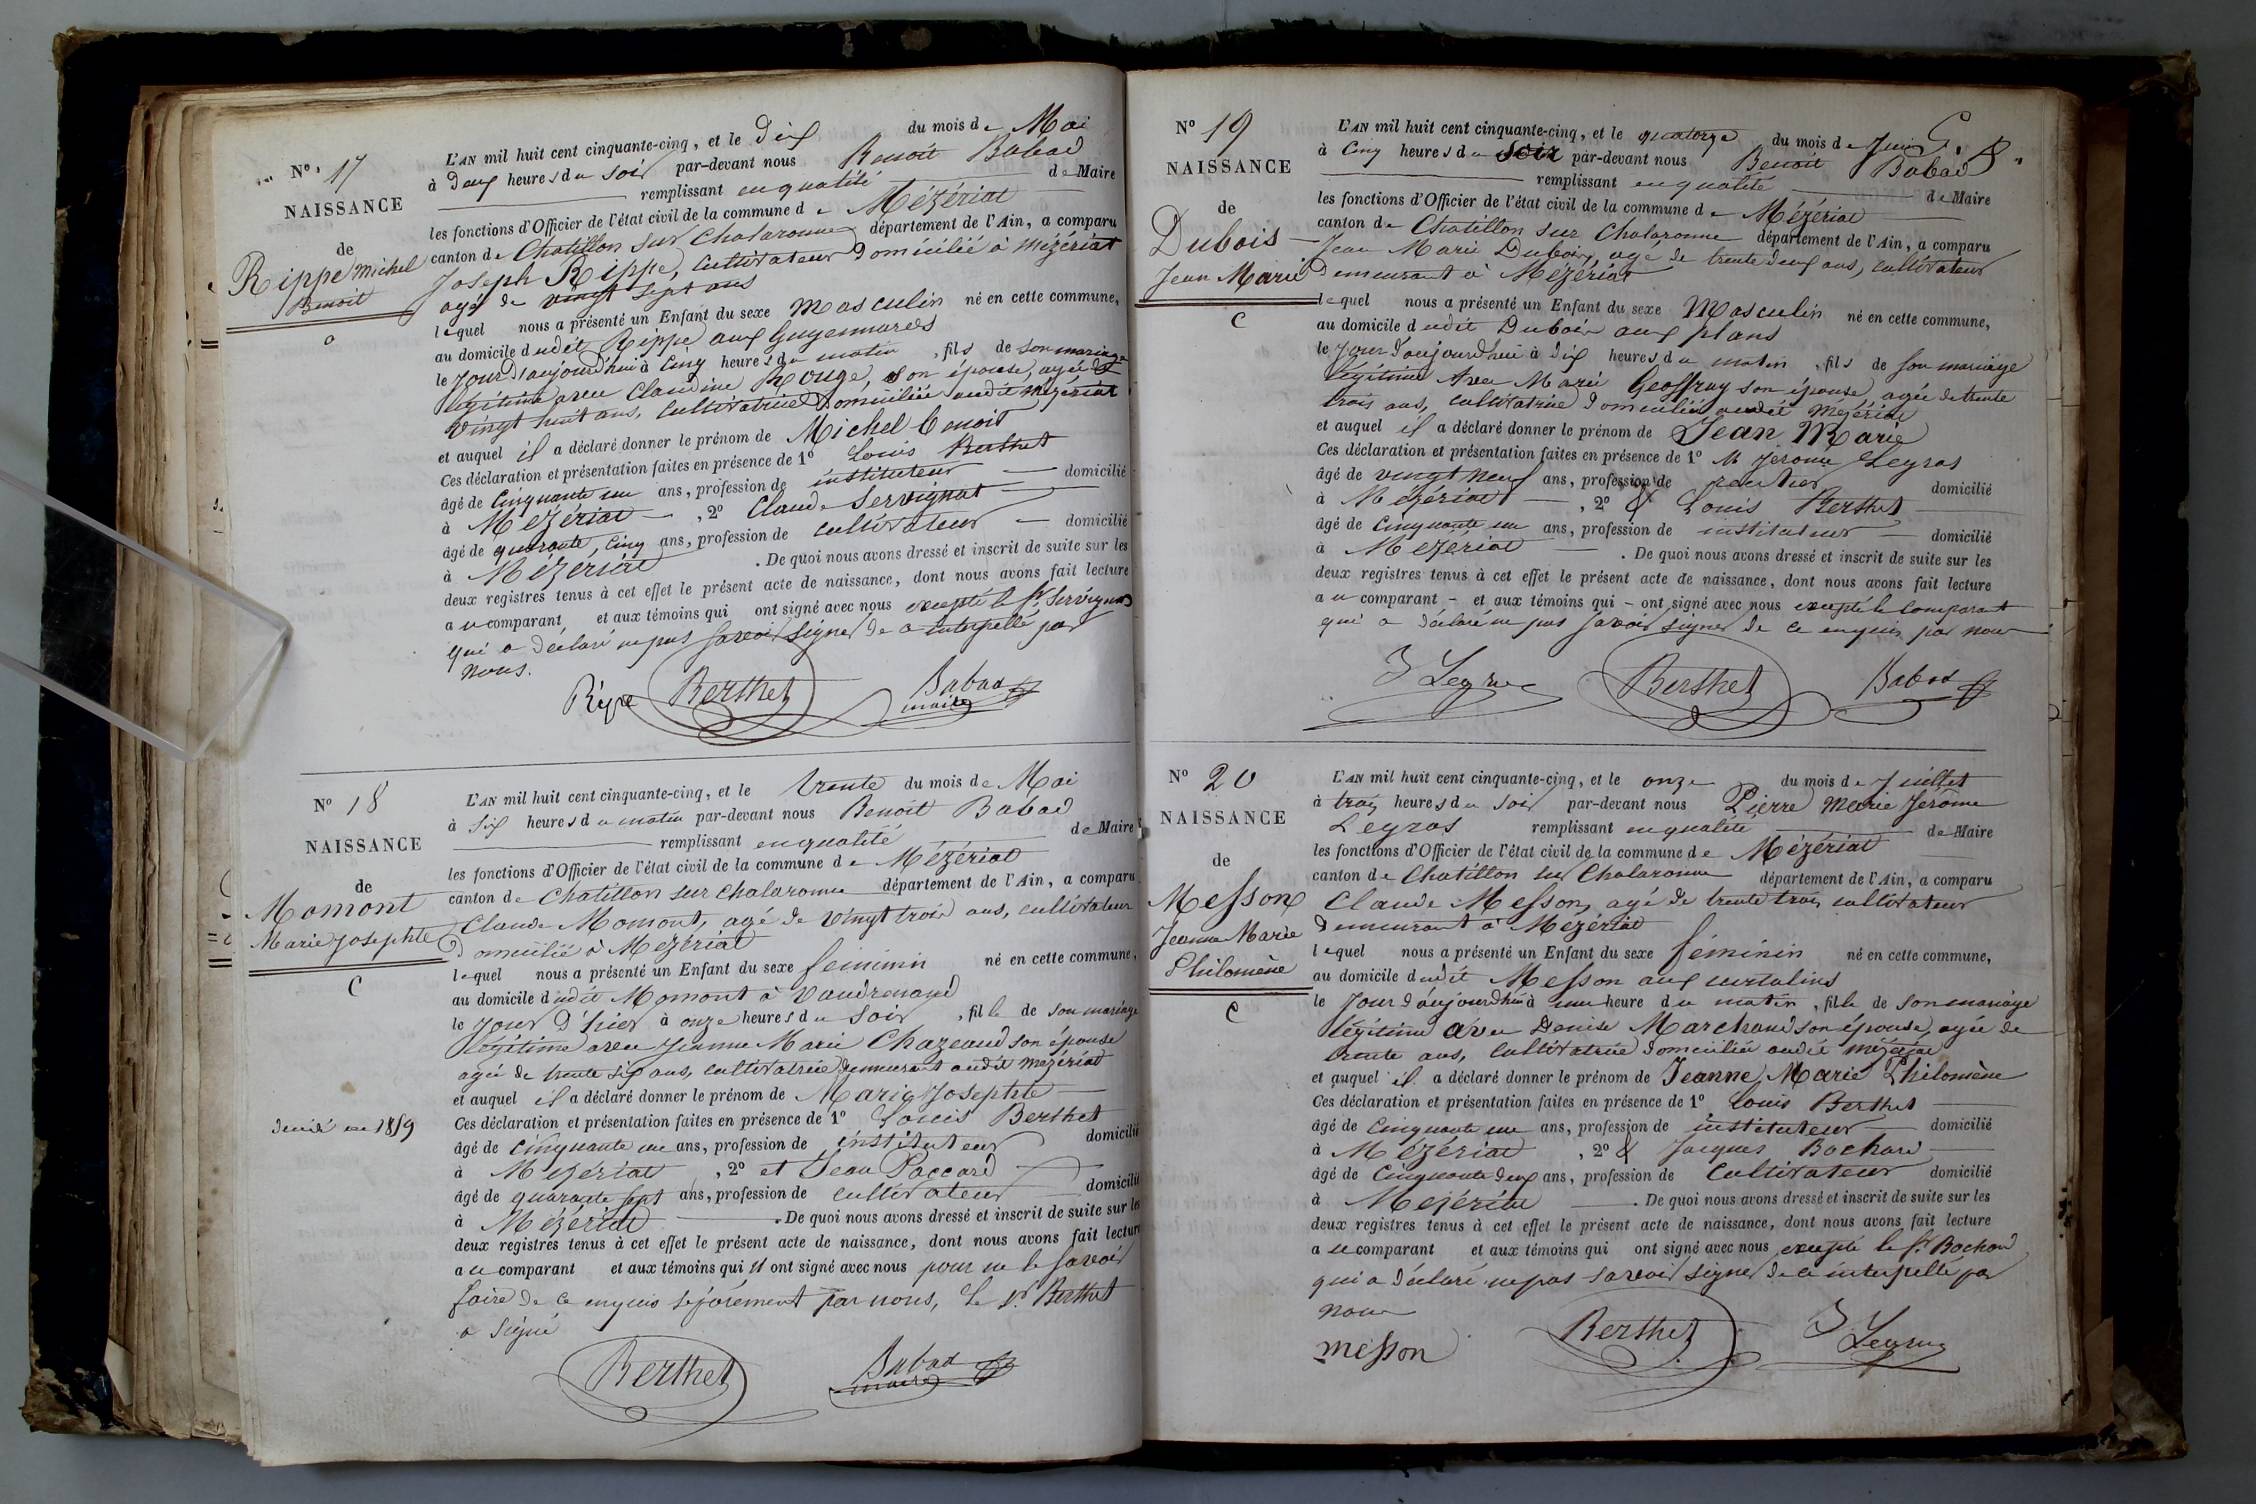 N° 17
NAISSANCE
de
Rippe Michel
Benoit
L'AN mil huit cent cinquante-cinq, et le Dix du mois de Mai
à Deux heures du soir par-devant nous Benoit Babad
remplissant en qualité de Maire
les fonctions d'Officier de l'état civil de la commune de Mézériat
canton de Chatillon sur Chalaronne département de l'Ain, a comparu
Joseph Rippe, cultivateur domicilié à Mézériat
agé de vingt sept ans
lequel nous a présenté un Enfant du sexe Masculin né en cette commune,
au domicile dudit Rippe aux
le jour d'aujourd'hui à Cinq heures du matin, fils de son mariage
légitime avec Claudine Rouge, son épouse, agée de
vingt huit ans, cultivatrice domiciliée audit Mézériat
et auquel il a déclaré donner le prénom de Michel benoit
Ces déclaration et présentation faites en présence de 1° Louis Berthet
âgé de Cinquante un ans, profession de instituteur domicilié
à Mézériat, 2° Claude Servignat
âgé de quarante, cinq ans, profession de cultivateur domicilié
à Mézériat. De quoi nous avons dressé et inscrit de suite sur les
deux registres tenus à cet effet le présent acte de naissance, dont nous avons fait lecture
au comparant, et aux témoins qui ont signé avec nous excepté le Sr. Servignat
qui a déclaré ne pas savoir signer de ce interpellé par
nous.
Rippe Berthet Babad
maire
N° 18
NAISSANCE
de
Momont
Marie Josephte
C
L'AN mil huit cent cinquante-cinq, et le trente du mois de Mai
à Six heures du matin par-devant nous Benoit Babad
remplissant en qualité de Maire
les fonctions d'Officier de l'état civil de la commune de Mézériat
canton de Chatillon sur Chalaronne département de l'Ain, a comparu
Claude Momont, agé de vingt trois ans, cultivateur
domicilié à Mézériat
lequel nous a présenté un Enfant du sexe feminin né en cette commune,
au domicile dudit Momont à Vaudrenand
le jour d'hier à onze heures du soir, fille de son mariage
légitime avec Jeanne Marie Chazeaud son épouse
agée de trente six ans, cultivatrice demeurant audit Mézériat
et auquel il a déclaré donner le prénom de Marie Josephte
Ces déclaration et présentation faites en présence de 1° Louis Berthet
âgé de cinquante un ans, profession de instituteur domicilié
à Mézériat, 2° et Jean Paccard
âgé de quarante sept ans, profession de cultivateur domicilié
à Mézériat. De quoi nous avons dressé et inscrit de suite sur les
deux registres tenus à cet effet le présent acte de naissance, dont nous avons fait lecture
au comparant et aux témoins qui n'ont signé avec nous pour ne le savoir
faire de ce enquis séparément par nous, le Sr. Berthet
a signé
en 1859
Berthet Babad
maire
N° 19
NAISSANCE
de
Dubois
Jean Marie
C
L'AN mil huit cent cinquante-cinq, et le quatorze du mois de Juin
à Cinq heures du soir par-devant nous Benoit Babad
remplissant en qualité de Maire
les fonctions d'Officier de l'état civil de la commune de Mézériat
canton de Chatillon sur Chalaronne département de l'Ain, a comparu
Jean Marie Dubois, agé de trente deux ans, cultivateur
demeurant à Mézériat
lequel nous a présenté un Enfant du sexe Masculin né en cette commune,
au domicile dudit Dubois aux plans
le jour d'aujourd'hui à Dix heures du matin, fils de son mariage
légitime Avec Marie Geoffray son épouse, agée de trente
trois ans, cultivatrice domiciliée audit Mézériat
et auquel il a déclaré donner le prénom de Jean Marie
Ces déclaration et présentation faites en présence de 1° M Jerome Legras
âgé de vingt neuf ans, profession de rentier domicilié
à Mézériat, 2° & Louis Berthet
âgé de Cinquante un ans, profession de instituteur domicilié
à Mézériat. De quoi nous avons dressé et inscrit de suite sur les
deux registres tenus à cet effet le présent acte de naissance, dont nous avons fait lecture
au comparant et aux témoins qui ont signé avec nous excepté le comparant
qui a déclaré ne pas savoir signer de ce enquis par nous
J Legras Berthet Babad
N° 20
NAISSANCE
de
Messon
Jeanne Marie
Philomène
C
L'AN mil huit cent cinquante-cinq, et le onze du mois de Juillet
à trois heures du soir par-devant nous Pierre Marie Jérôme
Legras remplissant en qualité de Maire
les fonctions d'Officier de l'état civil de la commune de Mézériat
canton de Chatillon sur Chalaronne département de l'Ain, a comparu
Claude Messon, agé de trente trois cultivateur
demeurant à Mézériat
lequel nous a présenté un Enfant du sexe féminin né en cette commune,
au domicile dudit Messon aux curtalins
le jour d'aujourdhui à une heure du matin, fille de son mariage
légitime avec Denise Marchand son épouse, agée de
trente ans, cultivatrice domiciliée audit Mézériat
et auquel il a déclaré donner le prénom de Jeanne Marie Philomène
Ces déclaration et présentation faites en présence de 1° Louis Berthet
âgé de Cinquante un ans, profession de instituteur domicilié
à Mézériat, 2° & Jacques Bochard
âgé de Cinquante deux ans, profession de cultivateur domicilié
à Mézériat. De quoi nous avons dressé et inscrit de suite sur les
deux registres tenus à cet effet le présent acte de naissance, dont nous avons fait lecture
au comparant et aux témoins qui ont signé avec nous excepté le Sr. Bochard
qui a déclaré ne pas savoir signer de ce interpellé par
nous
messon Berthet J Legras